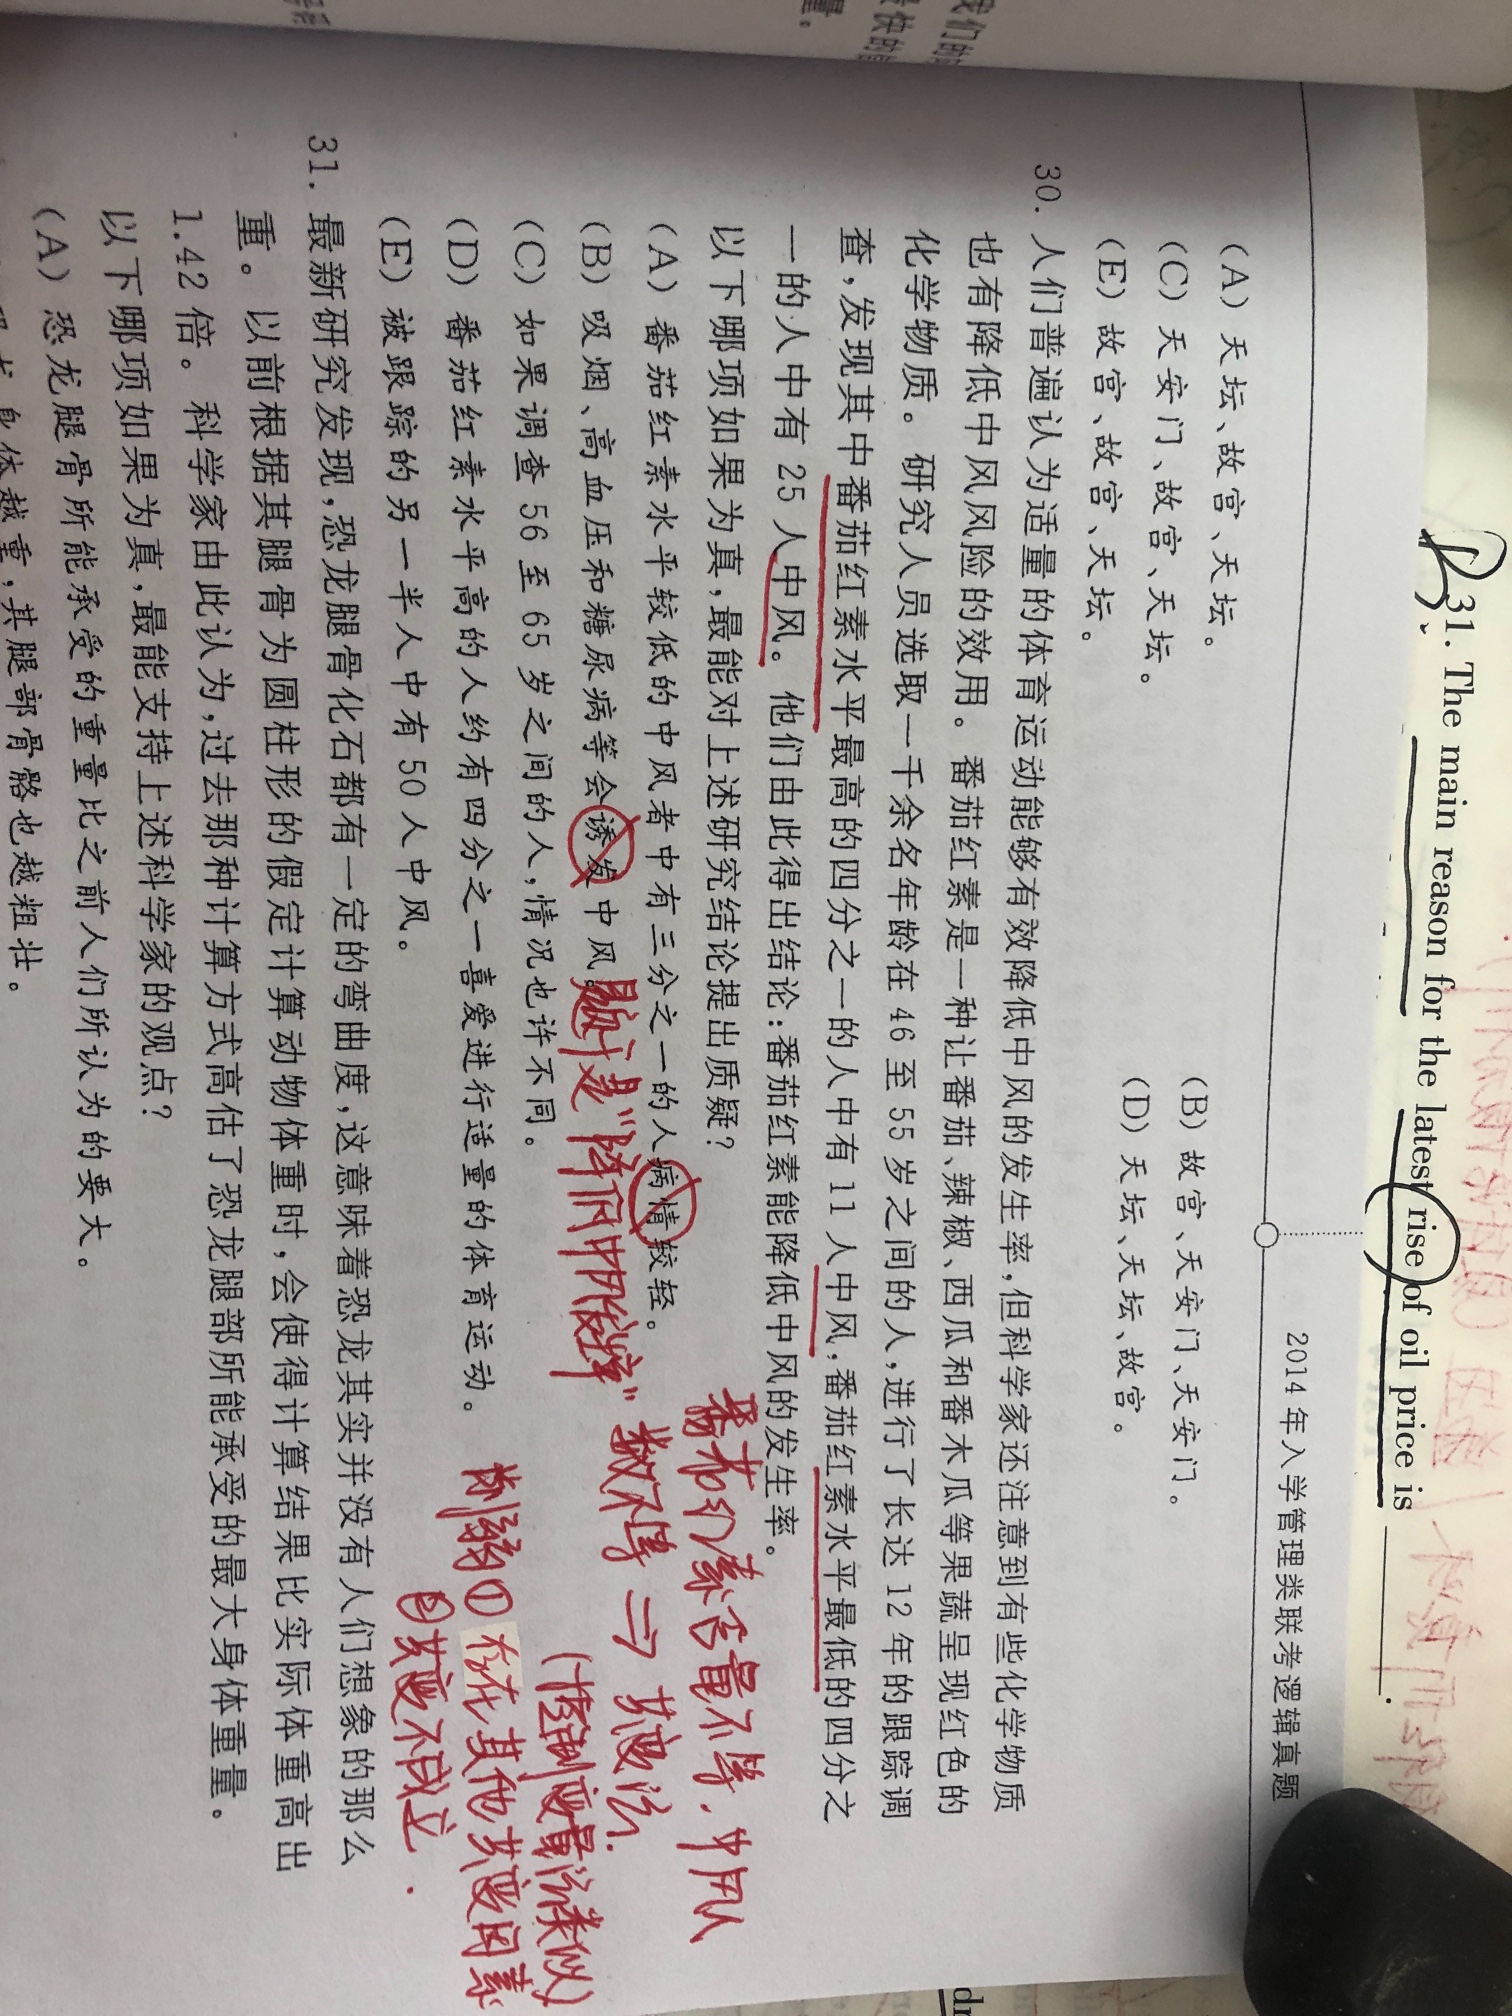 31. The main reason for the latest rise of oil price is ______.
2014 年入学管理类联考逻辑真题
(A) 天坛、故宫、天坛。
(B) 故宫、天安门、天安门。
(C) 天安门、故宫、天坛。
(D) 天坛、天坛、故宫。
(E) 故宫、故宫、天坛。
30. 人们普遍认为适量的体育运动能够有效降低中风的发生率,但科学家还注意到有些化学物质
也有降低中风风险的效用。番茄红素是一种让番茄、辣椒、西瓜和番木瓜等果蔬呈现红色的
化学物质。研究人员选取一千余名年龄在 46 至 55 岁之间的人,进行了长达 12 年的跟踪调
查,发现其中番茄红素水平最高的四分之一的人中有 11 人中风,番茄红素水平最低的四分之
一的人中有 25 人中风。他们由此得出结论:番茄红素能降低中风的发生率。
以下哪项如果为真,最能对上述研究结论提出质疑?
番茄红素含量不等,中风人
(A) 番茄红素水平较低的中风者中有三分之一的人病情较轻。
数不等 ⇒ 共变法.
(B) 吸烟、高血压和糖尿病等会诱发中风。
题干是“降低中风发病率”
(控制变量法类似)
(C) 如果调查 56 至 65 岁之间的人,情况也许不同。
(D) 番茄红素水平高的人约有四分之一喜爱进行适量的体育运动。
削弱① 存在其他共变因素
(E) 被跟踪的另一半人中有 50 人中风。
②共变不成立.
31. 最新研究发现,恐龙腿骨化石都有一定的弯曲度,这意味着恐龙其实并没有人们想象的那么
重。以前根据其腿骨为圆柱形的假定计算动物体重时,会使得计算结果比实际体重高出
1.42 倍。科学家由此认为,过去那种计算方式高估了恐龙腿部所能承受的最大身体重量。
以下哪项如果为真,最能支持上述科学家的观点?
(A) 恐龙腿骨所能承受的重量比之前人们所认为的要大。
身体越重,其腿部骨骼也越粗壮。